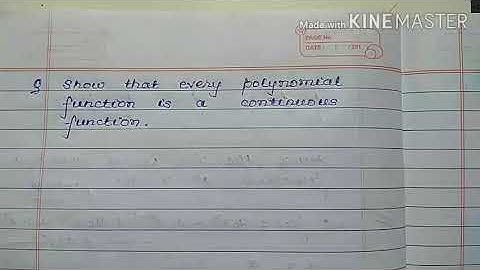 Made with KINEMASTER
PAGE No.
DATE
Q Show that every polynomial
function is a continuous
function.